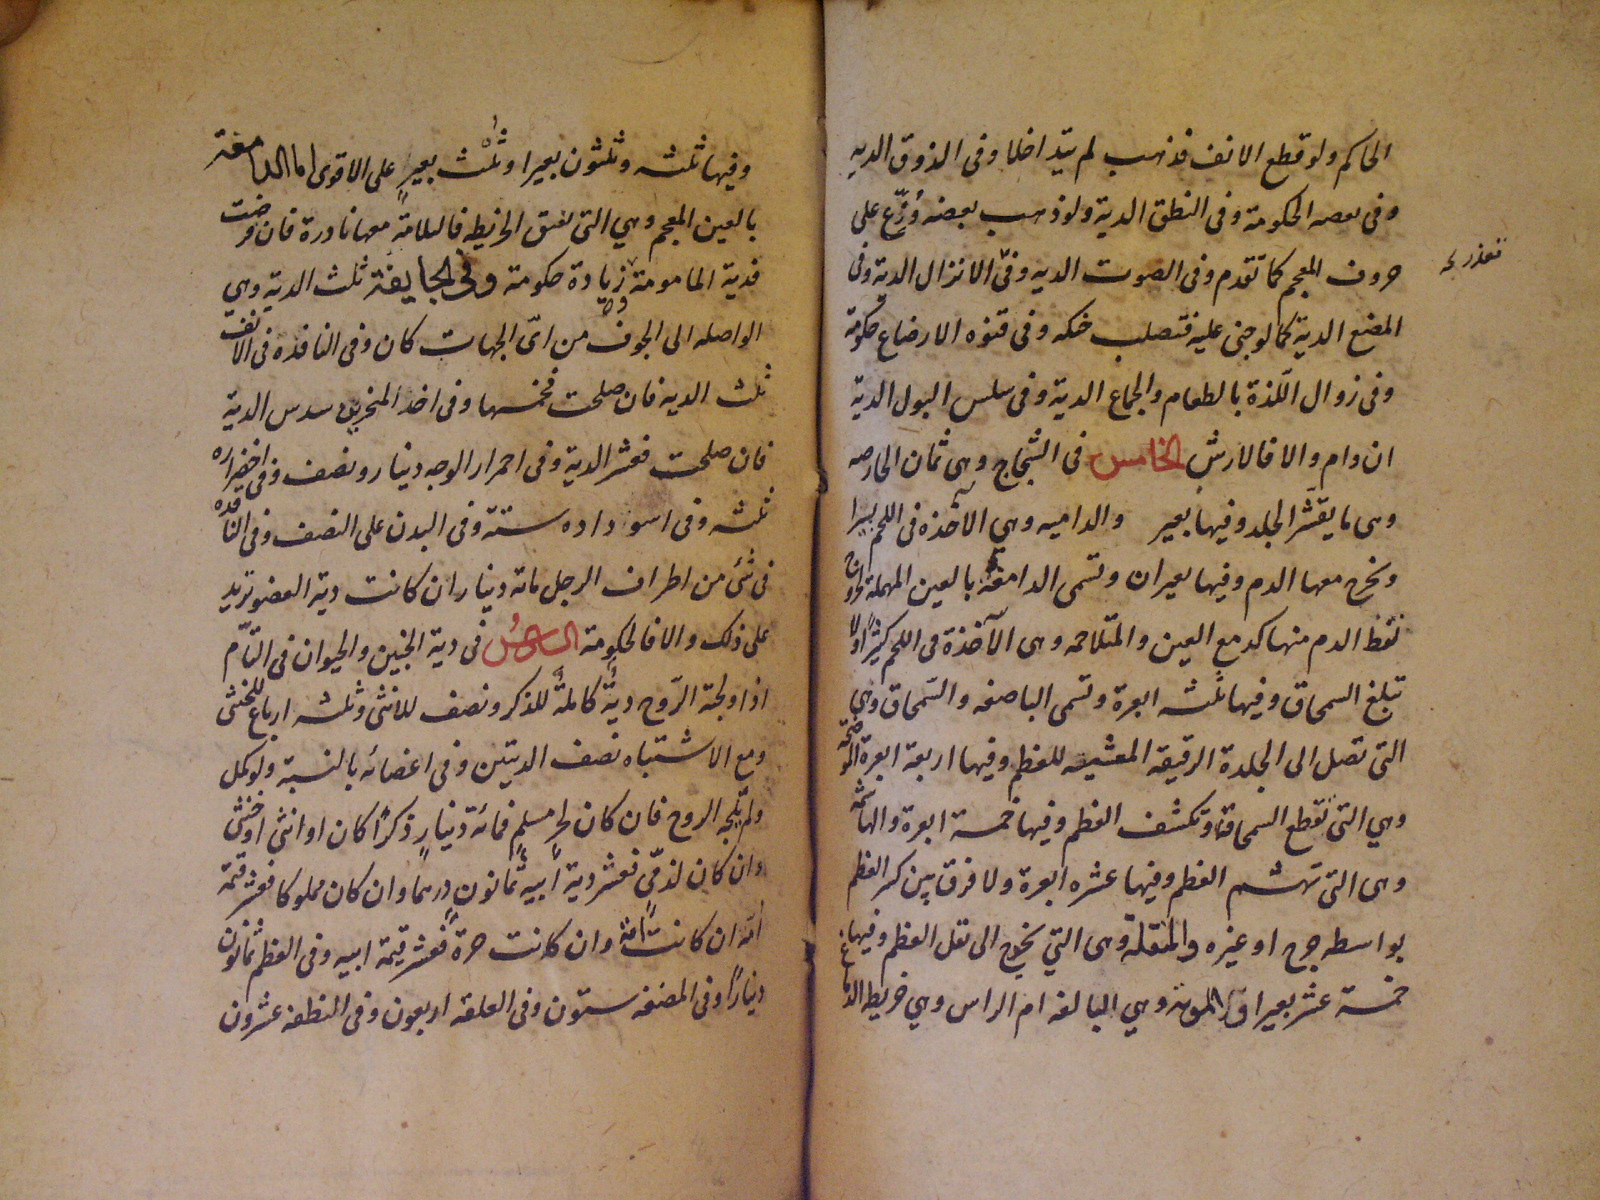 الحاكم ولو قطع الانف فذهب لم يتداخلا وفى الذوق الديه
وفى بعضه الحكومة وفى النطق الدية ولو ذهب بعضه وُزِّع على
حروف المعجم كما تقدم وفى الصوت الديه وفى الانزال الدية وفى
تعذر
المضع الدية كما لو جنى عليه فتصلب حنكه وفى قتوه الارضاع حكومة
وفى زوال اللّذة بالطعام والجماع الدية وفى سلس البول الدية
ان دام والا فالارش الخامس فى الشجاج وهى ثمان الحارصه
وهى ما يقشر الجلد وفيها بعير والداميه وهي الآخذه فى اللحم يسيرا
ويخرج معها الدم وفيها بعيران وتسمى الدامعة بالعين المهملة
نقط الدم منها كدمع العين والمتلاحمه وهى الآخذة فى اللحم كثيرًا ولا
تبلغ السمحاق وفيها ثلثه ابعرة وتسمى الباضعه والسمحاق وهي
التى تصل الى الجلدة الرقيقه المغشيه للعظم وفيها اربعة ابعرة الموضحة
وهي التى تقطع السمحاقة وتكشف العظم وفيها خمسة ابعرة والهاشمة
وهى التى تهشم العظم وفيها عشره ابعرة ولا فرق بين كسر العظم
بواسطه جرح او غيره والمنقله وهى التي تحوج الى نقل العظم وفيها
خمسة عشر بعيرا والمامومة وهي البالغه ام الراس وهي خريطة الدماغ
وفيها ثلثه وثلثون بعيرا وثلُث بعيرٍ على الاقوى اما الدامغة
بالغين المعجم وهي التى تفتق الخريطه فالسلامة معها نادرة فان فرضت
فدية المامومة وزيادة حكومة وفى الجايفة ثلث الدية وهي
الواصله الى الجوف من اىّ الجهات كان وفى النافذه فى الانف
ثلث الديه فان صلحت فخمسها وفى احد المنخرين سدس الدية
فان صلحت فعشر الدية وفى احمرار الوجه دينار ونصف وفى اخضراره
ثلثه وفى اسوداده ستّة وفى البدن على النصف وفى النافذه
فى شئ من اطراف الرجل مائة دينار ان كانت دية العضو تزيد
على ذلك والا فالحكومة السادس فى دية الجنين والحيوان فى التّام
اذا ولجته الرّوح ديةٌ كاملةٌ للذكر ونصف للانثى وثلثه ارباع للخنثى
ومع الاشتباه نصف الديتين وفى اعضائه بالنسبة ولو كمل
ولم يلجه الروح فان كان لحرٍ مسلمٍ فمائة دينارٍ ذكرًا كان او انثى او خنثى
وان كان لذمّى فعشر دية ابيه ثمانون درهمًا وان كان مملوكا فعشر قيمة
امّه ان كانت امةً وان كانت حرةً فعشر قيمة ابيه وفى العظم ثمانون
دينارًا وفى المضغه ستون وفى العلقه اربعون وفى النطفه عشرون